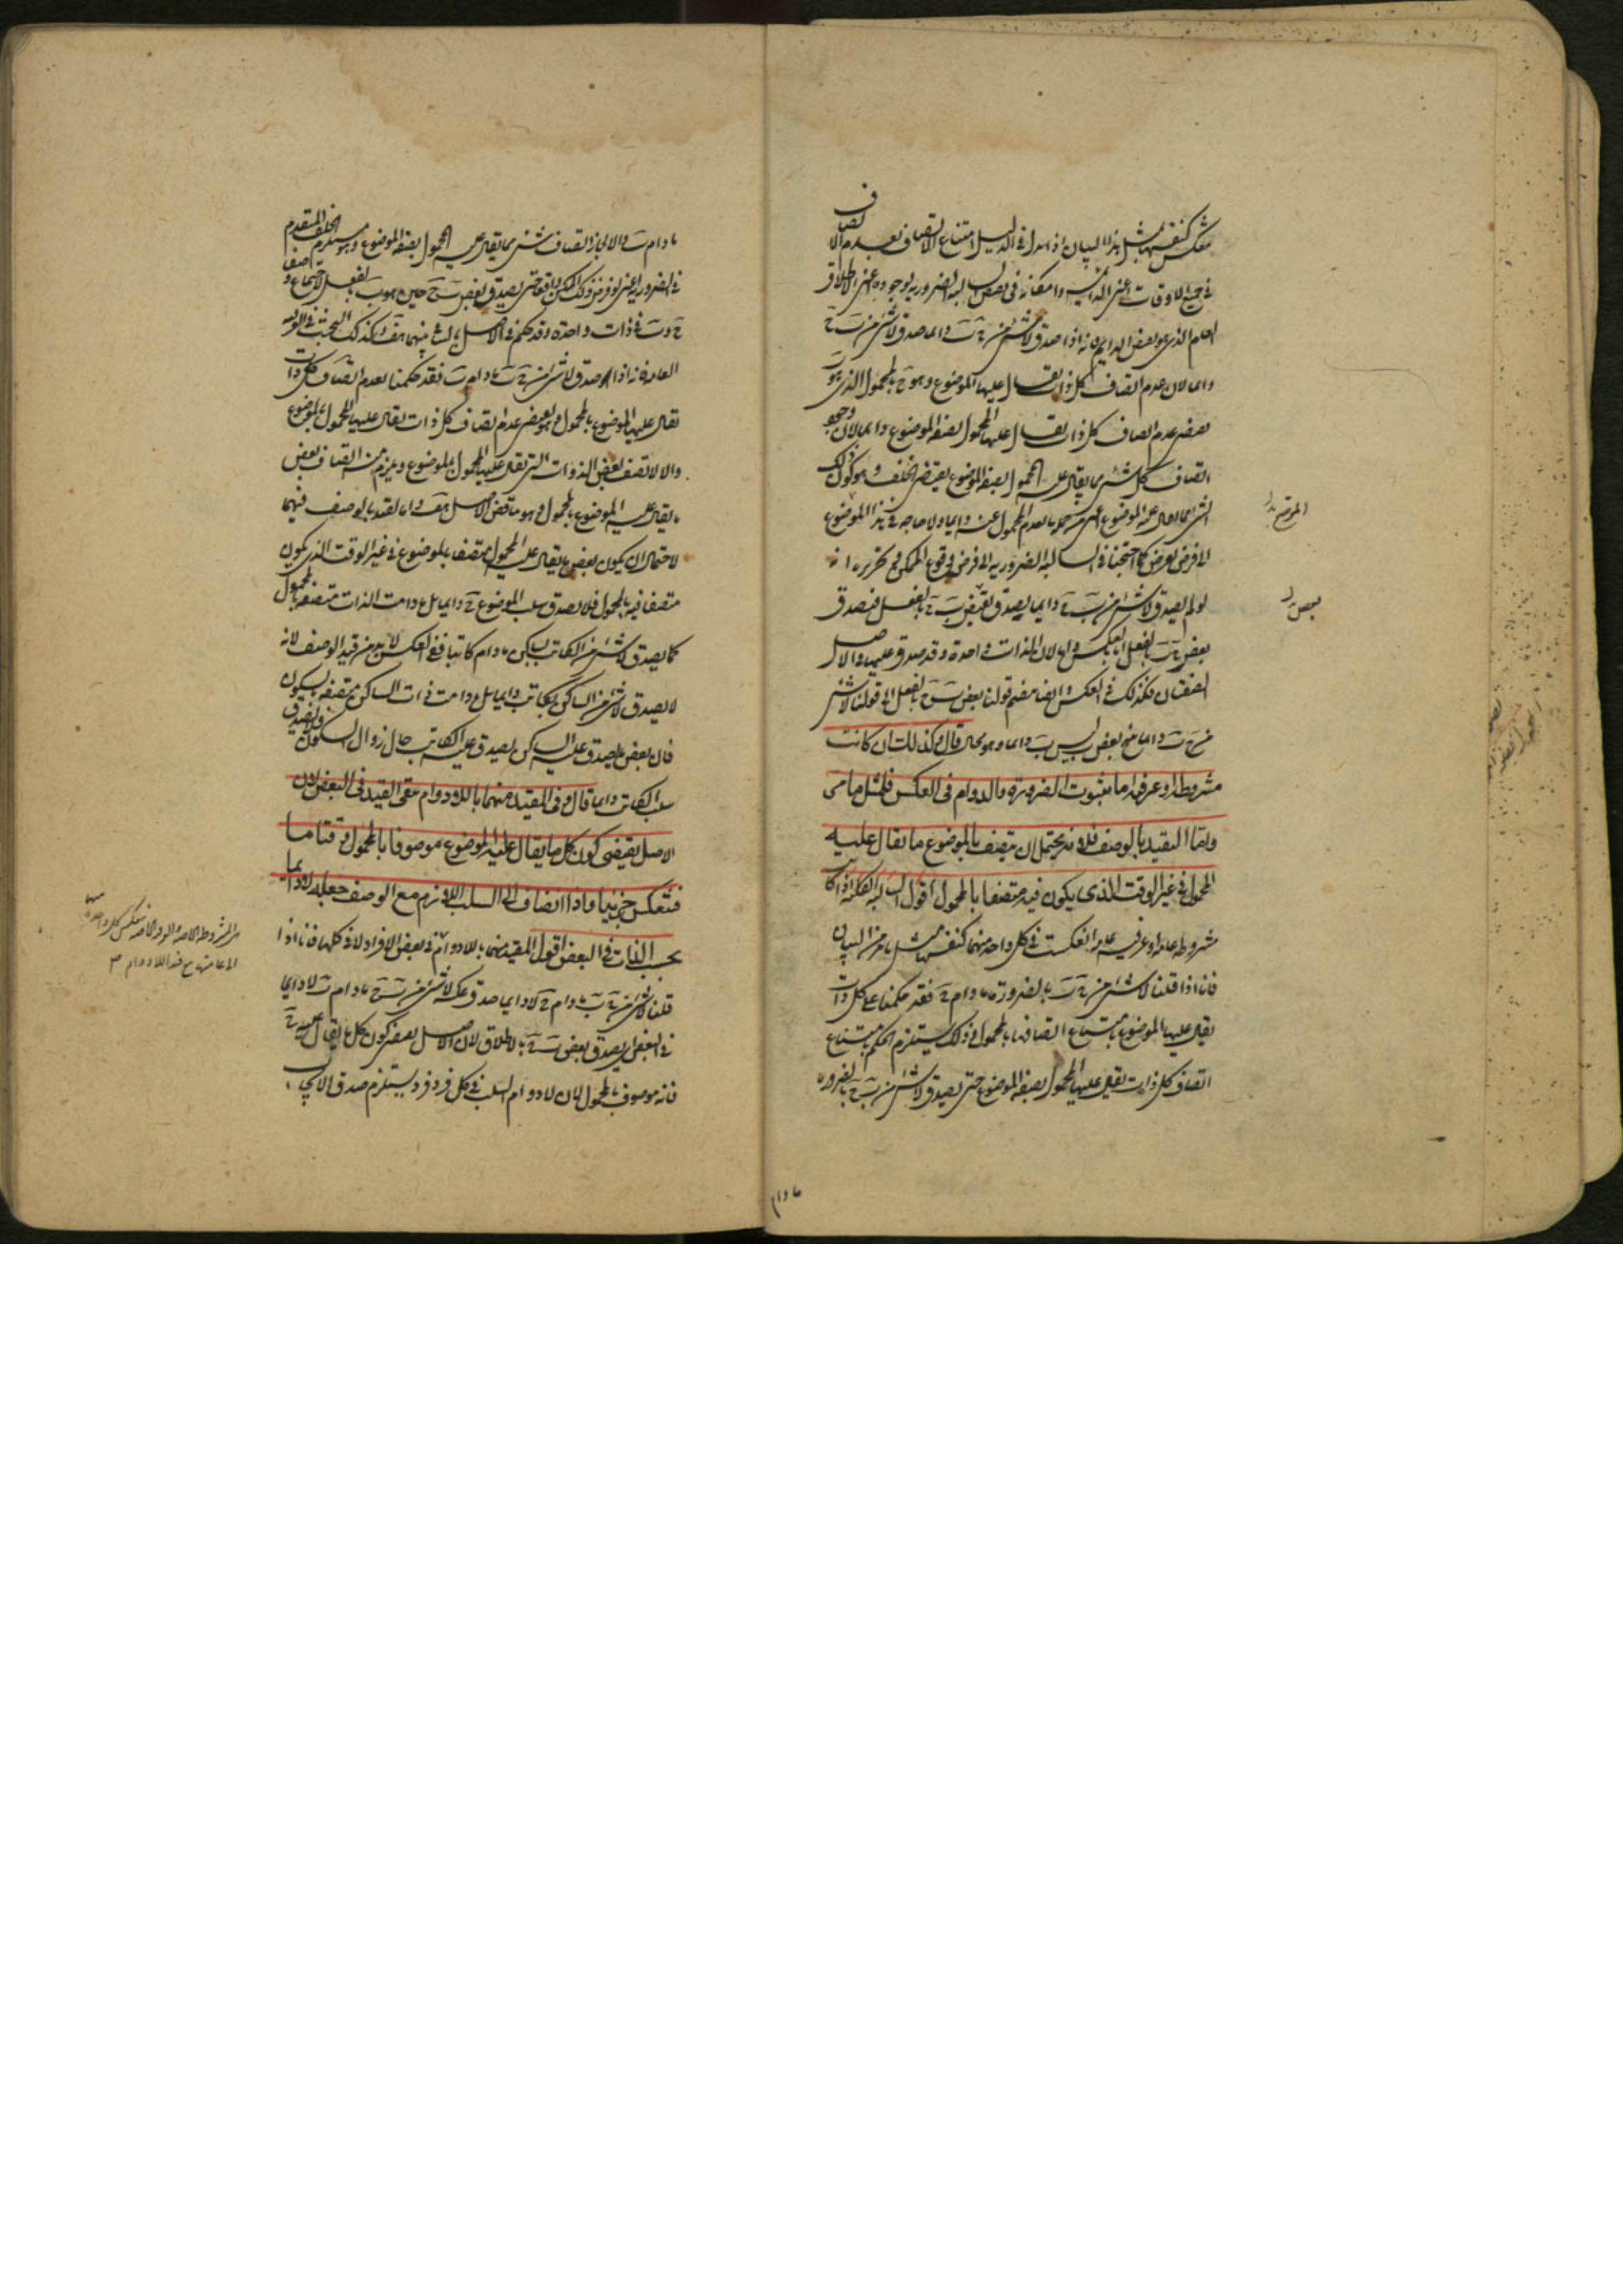 تنعكس كنفسها بمثل هذا البيان اذا بدل في الدليل امتناع الاتصاف بعدم الاتصاف
في جميع الاوقات اعني الدائم وامكانه في نقيض السالبة الضرورية بوجوده اعني الاطلاق
العام الذي هو نقيض الدائم فانه اذا صدق لا شئ من ج ب دائما صدق لا شئ من ب ج
دائما لان عدم اتصاف كل ذات يقال عليها الموضوع وهو ج بالمحمول الذي هو ب
يقتضي عدم اتصاف كل ذات يقال عليها المحمول بصفة الموضوع دائما لان وجود
اتصاف كل شئ مما يقال عليه المحمول بصفة الموضوع يقتضي الخلف وهو كون ذلك
الشئ مما يقال عليه الموضوع بعدم المحمول عنه دائما ولا حاجة في هذا الموضوع
الى فرض كما احتجنا في السالبة الضرورية الى فرض وقوع الممكن وتقريره انه
لو لم يصدق لا شئ من ب ج دائما يصدق بعض ب ج بالفعل فيصدق
بعض ج ب بالفعل لان الذات واحدة وقد صدق عليها والاصل
الصفتان فكذلك في العكس وايضا نضم قولنا بعض ب ج بالفعل الى قولنا لا شئ
من ج ب دائما ينتج بعض ب ليس ب دائما وهو محال قال وكذلك ان كانت
مشروطة او عرفية اما ثبوت الضرورة والدوام في العكس فلمثل ما مر
واما التقييد بالوصف فلانه يحتمل ان يتصف بالموضوع ما يقال عليه
المحمول في غير الوقت الذي يكون فيه متصفا بالمحمول اقول السالبة الكلية اذا كانت
مشروطة عامة او عرفية عامة انعكست في كل واحد منهما كنفسها بمثل ما مر من البيان
فانا اذا قلنا لا شئ من ج ب بالضرورة ما دام ج فقد حكمنا على كل ذات
يقال عليها الموضوع بامتناع اتصافها بالمحمول وذلك يستلزم الحكم بامتناع
اتصاف كل ذات يقال عليها المحمول بصفة الموضوع حتى يصدق لا شئ من ب ج بالضرورة
ما دام
الموضع
بعض
ما دام ب والا لجاز اتصاف شئ مما يقال عليه المحمول بصفة الموضوع وهو يستلزم الخلف المتقدم
في الضرورية اعني لو فرض ذلك الممكن واقعا حتى يصدق بعض ب ج حين هو ب بالفعل لاجتماع وصفا
ج وب في ذات واحدة وقد حكم في الاصل بالتنافي بينهما هف وكذلك البحث في العرفية
العامة فانه اذا صدق لا شئ من ج ب ما دام ج فقد حكمنا بعدم اتصاف كل ذات
يقال عليها الموضوع بالمحمول وهو يقتضي عدم اتصاف كل ذات يقال عليها المحمول بالموضوع
والا لاتصف بعض الذوات التي يقال عليها المحمول بالموضوع ويلزم منه اتصاف بعض
ما يقال عليه الموضوع بالمحمول وهو مناقض الاصل هف واما التقييد بالوصف فيهما
لاحتمال ان يكون بعض ما يقال عليه المحمول متصفا بالموضوع في غير الوقت الذي يكون
متصفا فيه بالمحمول فلا يصدق سلب الموضوع ج دائما بل ما دامت الذات متصفة بالمحمول
كما يصدق لا شئ من الكاتب بساكن ما دام كاتبا ففي العكس لا بد من قيد الوصف لانه
لا يصدق لا شئ من الساكن بكاتب دائما بل ما دامت ذات الساكن متصفة بالسكون
فان بعض ما يصدق عليه الساكن يصدق عليه الكاتب حال زوال السكون فلا يصدق
سلب الكاتب دائما قال وفي المقيد منهما باللادوام يبقى القيد في البعض لان
الاصل يقتضي كون كل ما يقال عليه الموضوع موصوفا بالمحمول وقتا ما
فتنعكس جزئيا واذا انضاف الى السلب اللازم مع الوصف جعله لا دائما
بحسب الذات في البعض اقول المقيد منهما باللادوام في بعض الافراد لا في كلها فانا اذا
قلنا لا شئ من ج ب ما دام ج لا دائما صدق عكسه لا شئ من ب ج ما دام ب لا دائما
في البعض اي يصدق بعض ب ج بالاطلاق لان الاصل يقتضي كون كل ما يقال عليه ج
فانه موصوف بالمحمول لان لا دوام السلب في كل فرد فرد يستلزم صدق الايجاب
اي المشروطة الخاصة والعرفية الخاصة تنعكس كل واحدة منهما
الى عامتها مع قيد اللادوام